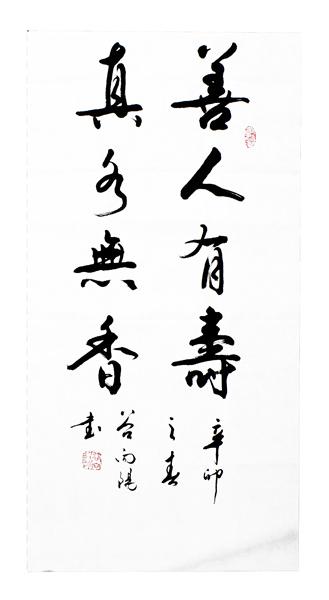 善人有壽
真水無香
辛卯
之春
谷向陽
書